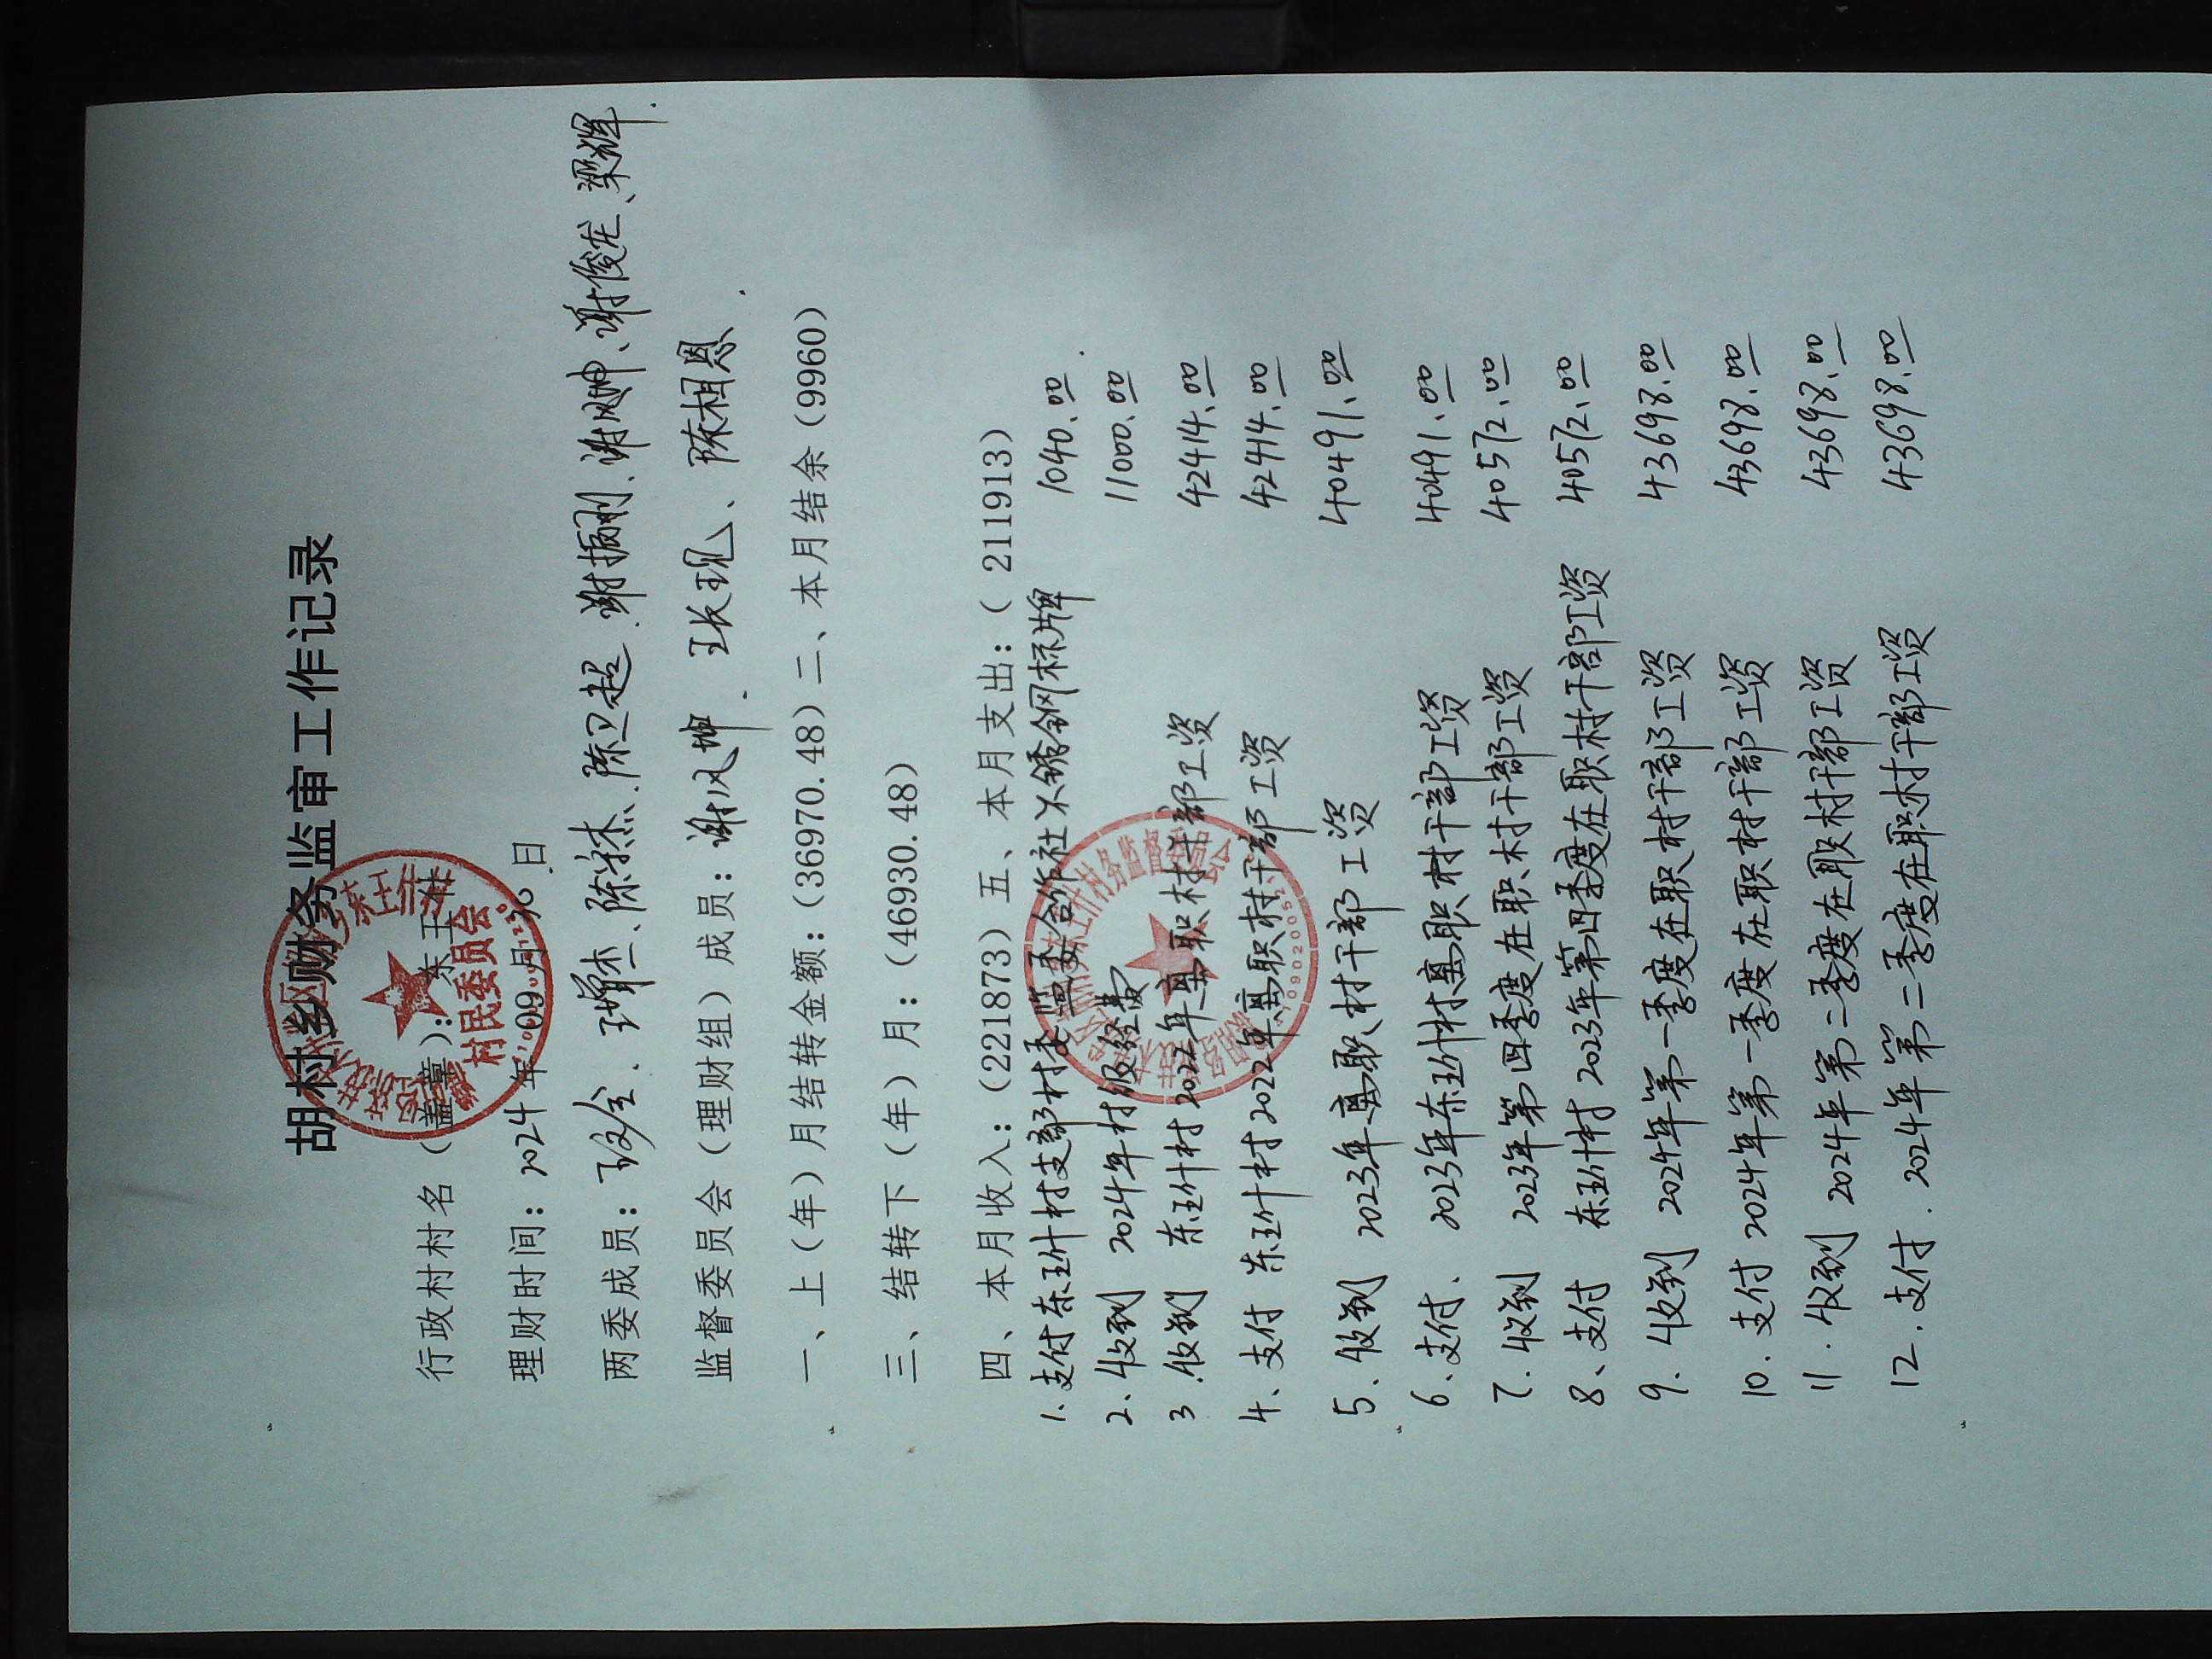 胡村乡财务监审工作记录
行政村村名（盖章）：东王什
理财时间：2024年09月30日
两委成员：陈卫超、谢振刚、谢飓坤、谢俊龙、梁辉
监督委员会（理财组）成员：谢风坤、陈相恩
一、上（年）月结转金额：（36970.48）二、本月结余（9960）
三、结转下（年）月：（46930.48）
四、本月收入：（221873）五、本月支出：（211913）
1、支付东王什村支部村委监委合作社不锈钢标牌 1040.00
2、收到 2024年村级经费 11000.00
3、收到 东王什村2022年离职村干部工资 42414.00
4、支付 东王什村2022年离职村干部工资 42414.00
5、收到 2023年离职村干部工资 40491.00
6、支付、2023年东王什村离职村干部工资 40491.00
7、收到 2023年第四季度在职村干部工资 40572.00
8、支付 东王什村2023年第四季度在职村干部工资 40572.00
9、收到 2024年第一季度在职村干部工资 43698.00
10、支付2024年第一季度在职村干部工资 43698.00
11、收到 2024年第二季度在职村干部工资 43698.00
12、支付、2024年第二季度在职村干部工资 43698.00
村民委员会
村务监督委员会